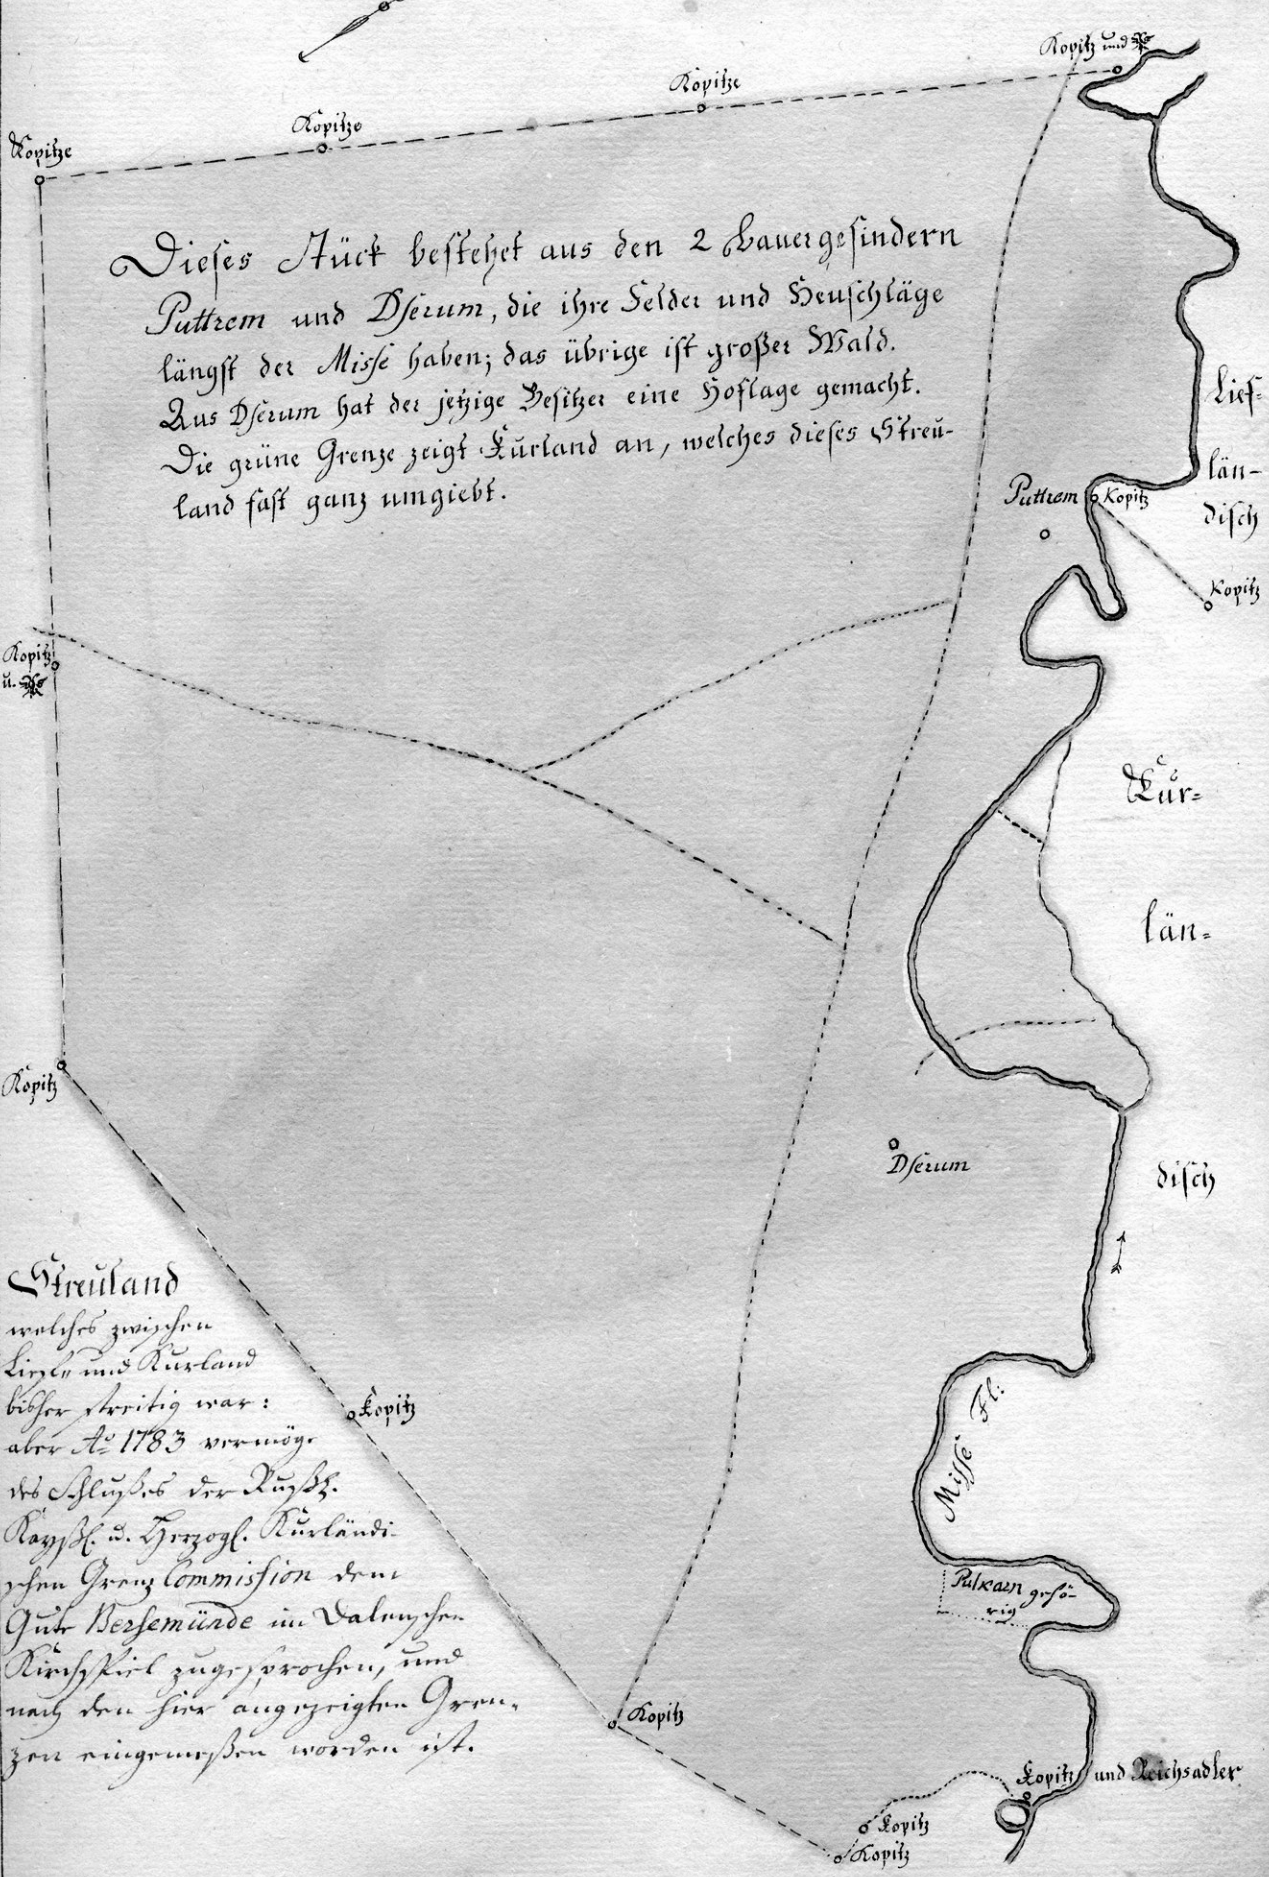 Kopitz und
Kopitze
Kopitze
Kopitze
Dieses Stück bestehet aus den 2 Bauergesindern
Puttrem und Dserum, die ihre Felder und Heuschläge
längst der Misse haben; das übrige ist großer Wald.
Aus Dserum hat der jetzige Besitzer eine Hoflage gemacht.
Die grüne Grenze zeigt Kurland an, welches dieses Streu-
land fast ganz umgiebt.
Lief-
län-
disch
Puttrem
Kopitz
Kopitz
Kopitz
u.
Kur-
län-
disch
Kopitz
Dserum
Streuland
welches zwischen
Liefl. und Kurland
bisher streitig war:
aber Ao 1783 vermöge
des Schlußes der Rußk.
Kayßl. u. Herzogl. Kurländi-
schen Grenz Commission dem
Gute Bersemünde im Dalenschen
Kirchspiel zugesprochen, und
nach den hier angezeigten Gren-
zen eingemeßen worden ist.
Kopitz
Misse Fl:
Pulkarn gehö-
rig
Kopitz
Kopitz und Reichsadler
Kopitz
Kopitz